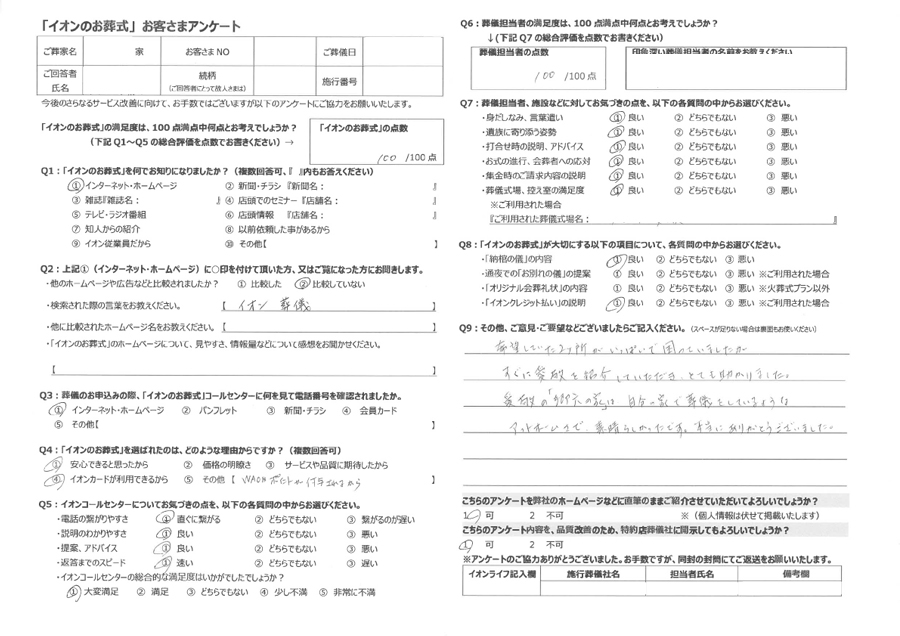 「イオンのお葬式」お客さまアンケート
ご葬家名 家 お客さまNO ご葬儀日
ご回答者氏名 続柄 (ご回答者にとって故人さまは) 施行番号
今後のさらなるサービス改善に向けて、お手数ではございますが以下のアンケートにご協力をお願いいたします。
「イオンのお葬式」の満足度は、100点満点中何点とお考えでしょうか?
(下記Q1～Q5の総合評価を点数でお書きください) →
「イオンのお葬式」の点数
100 /100点
Q1:「イオンのお葬式」を何でお知りになりましたか?(複数回答可、『 』内もお答えください)
① インターネット・ホームページ ② 新聞・チラシ『新聞名: 』
③ 雑誌『雑誌名: 』 ④ 店頭でのセミナー『店舗名: 』
⑤ テレビ・ラジオ番組 ⑥ 店頭情報 『店舗名: 』
⑦ 知人からの紹介 ⑧ 以前依頼した事があるから
⑨ イオン従業員だから ⑩ その他【 】
Q2:上記①(インターネット・ホームページ)に○印を付けて頂いた方、又はご覧になった方にお聞きします。
・他のホームページや広告などと比較されましたか? ① 比較した ② 比較していない
・検索された際の言葉をお教えください。 【 イオン 葬儀 】
・他に比較されたホームページ名をお教えください。【 】
・「イオンのお葬式」のホームページについて、見やすさ、情報量などについて感想をお聞かせください。
【 】
Q3:葬儀のお申込みの際、「イオンのお葬式」コールセンターに何を見て電話番号を確認されましたか。
① インターネット・ホームページ ② パンフレット ③ 新聞・チラシ ④ 会員カード
⑤ その他【 】
Q4:「イオンのお葬式」を選ばれたのは、どのような理由からですか?(複数回答可)
① 安心できると思ったから ② 価格の明瞭さ ③ サービスや品質に期待したから
④ イオンカードが利用できるから ⑤ その他【 WAONポイントが付与されるから 】
Q5:イオンコールセンターについてお気づきの点を、以下の各質問の中からお選びください。
・電話の繋がりやすさ ① 直ぐに繋がる ② どちらでもない ③ 繋がるのが遅い
・説明のわかりやすさ ① 良い ② どちらでもない ③ 悪い
・提案、アドバイス ① 良い ② どちらでもない ③ 悪い
・返答までのスピード ① 速い ② どちらでもない ③ 遅い
・イオンコールセンターの総合的な満足度はいかがでしたでしょうか?
① 大変満足 ② 満足 ③ どちらでもない ④ 少し不満 ⑤ 非常に不満
Q6:葬儀担当者の満足度は、100点満点中何点とお考えでしょうか?
↓(下記Q7の総合評価を点数でお書きください)
葬儀担当者の点数
100 /100点
印象深い葬儀担当者の名前をお教えください
Q7:葬儀担当者、施設などに対してお気づきの点を、以下の各質問の中からお選びください。
・身だしなみ、言葉遣い ① 良い ② どちらでもない ③ 悪い
・遺族に寄り添う姿勢 ① 良い ② どちらでもない ③ 悪い
・打合せ時の説明、アドバイス ① 良い ② どちらでもない ③ 悪い
・お式の進行、会葬者への応対 ① 良い ② どちらでもない ③ 悪い
・集金時のご請求内容の説明 ① 良い ② どちらでもない ③ 悪い
・葬儀式場、控え室の満足度 ① 良い ② どちらでもない ③ 悪い
※ご利用された場合
『ご利用された葬儀式場名: 』
Q8:「イオンのお葬式」が大切にする以下の項目について、各質問の中からお選びください。
・「納棺の儀」の内容 ① 良い ② どちらでもない ③ 悪い
・通夜での「お別れの儀」の提案 ① 良い ② どちらでもない ③ 悪い ※ご利用された場合
・「オリジナル会葬礼状」の内容 ① 良い ② どちらでもない ③ 悪い ※火葬式プラン以外
・「イオンクレジット払い」の説明 ① 良い ② どちらでもない ③ 悪い ※ご利用された場合
Q9:その他、ご意見・ご要望などございましたらご記入ください。(スペースが足りない場合は裏面もお使いください)
希望していた所がいっぱいで困っていましたが
すぐに 紹介していただき、とても助かりました。
の「 の家」は 自分の家で葬儀をしているような
アットホームで、素晴らしかったです。本当にありがとうございました。
こちらのアンケートを弊社のホームページなどに直筆のままご紹介させていただいてよろしいでしょうか?
1 可 2 不可 ※(個人情報は伏せて掲載いたします)
こちらのアンケート内容を、品質改善のため、特約店葬儀社に開示してもよろしいでしょうか?
1 可 2 不可
※アンケートのご協力ありがとうございました。お手数ですが、同封の封筒にてご返送をお願いいたします。
イオンライフ記入欄 施行葬儀社名 担当者氏名 備考欄